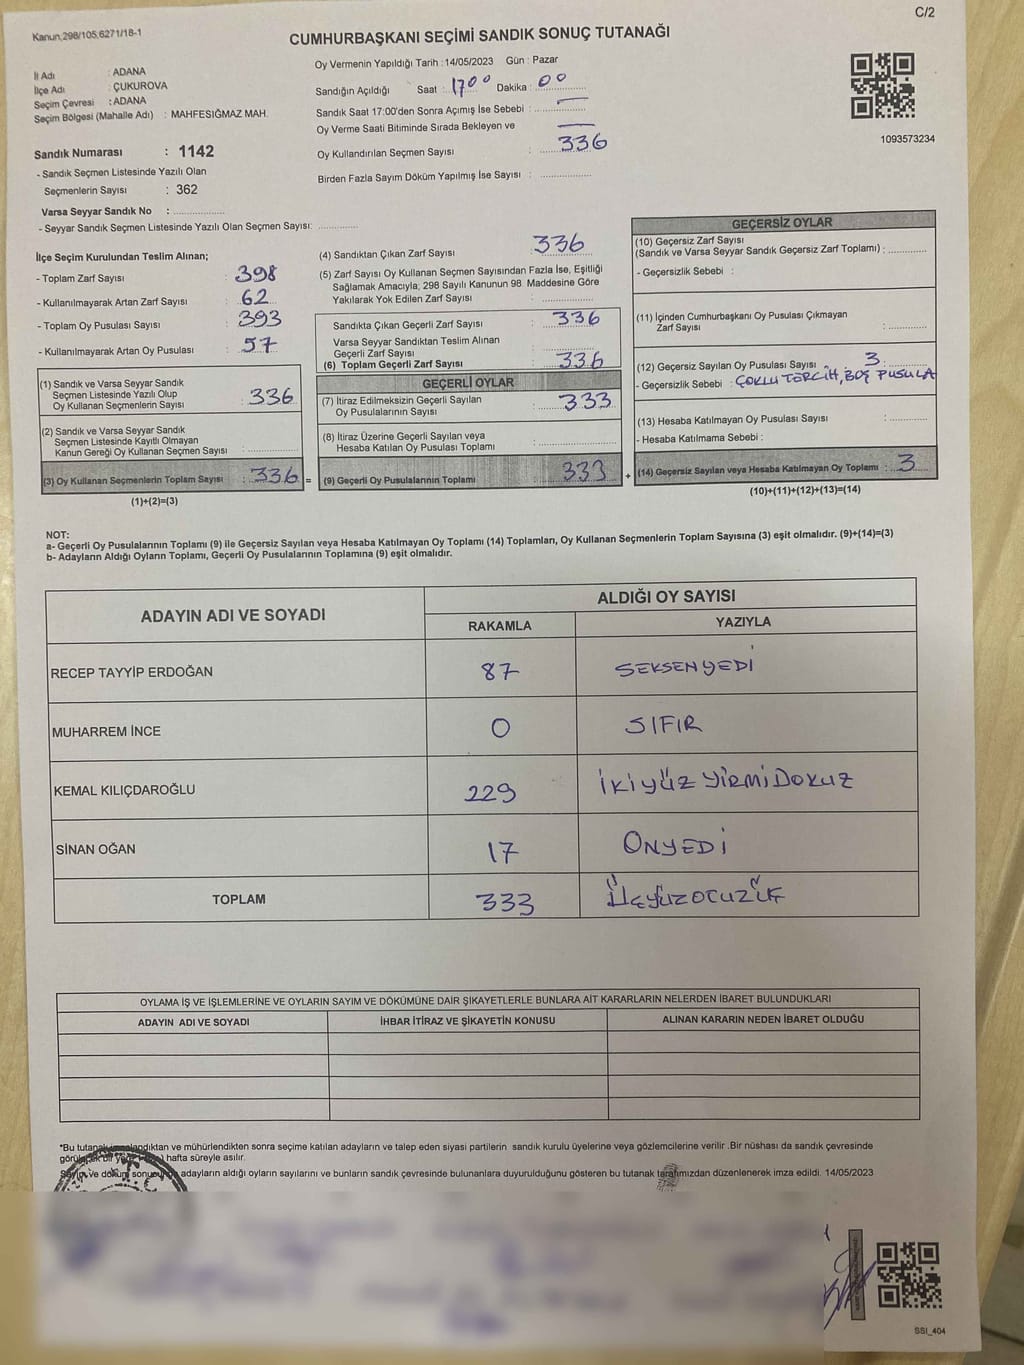 C/2
Kanun,298/105,6271/18-1
CUMHURBAŞKANI SEÇİMİ SANDIK SONUÇ TUTANAĞI
İl Adı : ADANA
İlçe Adı : ÇUKUROVA
Seçim Çevresi : ADANA
Seçim Bölgesi (Mahalle Adı) : MAHFESIĞMAZ MAH.
Sandık Numarası : 1142
- Sandık Seçmen Listesinde Yazılı Olan
Seçmenlerin Sayısı : 362
Varsa Seyyar Sandık No :
- Seyyar Sandık Seçmen Listesinde Yazılı Olan Seçmen Sayısı:
Oy Vermenin Yapıldığı Tarih :14/05/2023 Gün : Pazar
Sandığın Açıldığı Saat : 17 00 Dakika : 00
Sandık Saat 17:00'den Sonra Açımış İse Sebebi : —
Oy Verme Saati Bitiminde Sırada Bekleyen ve —
Oy Kullandırılan Seçmen Sayısı : 336
Birden Fazla Sayım Döküm Yapılmış İse Sayısı :
1093573234
İlçe Seçim Kurulundan Teslim Alınan;
- Toplam Zarf Sayısı : 398
- Kullanılmayarak Artan Zarf Sayısı : 62
- Toplam Oy Pusulası Sayısı : 393
- Kullanılmayarak Artan Oy Pusulası : 57
(1) Sandık ve Varsa Seyyar Sandık
Seçmen Listesinde Yazılı Olup
Oy Kullanan Seçmenlerin Sayısı : 336
(2) Sandık ve Varsa Seyyar Sandık
Seçmen Listesinde Kayıtlı Olmayan
Kanun Gereği Oy Kullanan Seçmen Sayısı :
(3) Oy Kullanan Seçmenlerin Toplam Sayısı : 336 =
(1)+(2)=(3)
(4) Sandıktan Çıkan Zarf Sayısı : 336
(5) Zarf Sayısı Oy Kullanan Seçmen Sayısından Fazla İse, Eşitliği
Sağlamak Amacıyla, 298 Sayılı Kanunun 98 Maddesine Göre
Yakılarak Yok Edilen Zarf Sayısı :
Sandıkta Çıkan Geçerli Zarf Sayısı : 336
Varsa Seyyar Sandıktan Teslim Alınan
Geçerli Zarf Sayısı :
(6) Toplam Geçerli Zarf Sayısı : 336
GEÇERLİ OYLAR
(7) İtiraz Edilmeksizin Geçerli Sayılan
Oy Pusulalarının Sayısı : 333
(8) İtiraz Üzerine Geçerli Sayılan veya
Hesaba Katılan Oy Pusulası Toplamı :
(9) Geçerli Oy Pusulalarının Toplamı : 333 +
GEÇERSİZ OYLAR
(10) Geçersiz Zarf Sayısı
(Sandık ve Varsa Seyyar Sandık Geçersiz Zarf Toplamı) :
- Geçersizlik Sebebi :
(11) İçinden Cumhurbaşkanı Oy Pusulası Çıkmayan
Zarf Sayısı :
(12) Geçersiz Sayılan Oy Pusulası Sayısı : 3
- Geçersizlik Sebebi : ÇOKLU TERCİH, BOŞ PUSULA
(13) Hesaba Katılmayan Oy Pusulası Sayısı :
- Hesaba Katılmama Sebebi :
(14) Geçersiz Sayılan veya Hesaba Katılmayan Oy Toplamı : 3
(10)+(11)+(12)+(13)=(14)
NOT:
a- Geçerli Oy Pusulalarının Toplamı (9) ile Geçersiz Sayılan veya Hesaba Katılmayan Oy Toplamı (14) Toplamları, Oy Kullanan Seçmenlerin Toplam Sayısına (3) eşit olmalıdır. (9)+(14)=(3)
b- Adayların Aldığı Oyların Toplamı, Geçerli Oy Pusulalarının Toplamına (9) eşit olmalıdır.
ADAYIN ADI VE SOYADI ALDIĞI OY SAYISI
RAKAMLA YAZIYLA
RECEP TAYYİP ERDOĞAN 87 SEKSENYEDİ
MUHARREM İNCE 0 SIFIR
KEMAL KILIÇDAROĞLU 229 İKİYÜZ YİRMİDOKUZ
SİNAN OĞAN 17 ONYEDİ
TOPLAM 333 ÜÇYÜZOTUZÜÇ
OYLAMA İŞ VE İŞLEMLERİNE VE OYLARIN SAYIM VE DÖKÜMÜNE DAİR ŞİKAYETLERLE BUNLARA AİT KARARLARIN NELERDEN İBARET BULUNDUKLARI
ADAYIN ADI VE SOYADI İHBAR İTİRAZ VE ŞİKAYETİN KONUSU ALINAN KARARIN NEDEN İBARET OLDUĞU
*Bu ve mühürlendikten sonra seçime katılan adayların ve talep eden siyasi partilerin sandık kurulu üyelerine veya gözlemcilerine verilir .Bir nüshası da sandık çevresinde
hafta süreyle asılır.
adayların aldığı oyların sayılarını ve bunların sandık çevresinde bulunanlara duyurulduğunu gösteren bu tutanak tarafımızdan düzenlenerek imza edildi. 14/05/2023
SSI_404